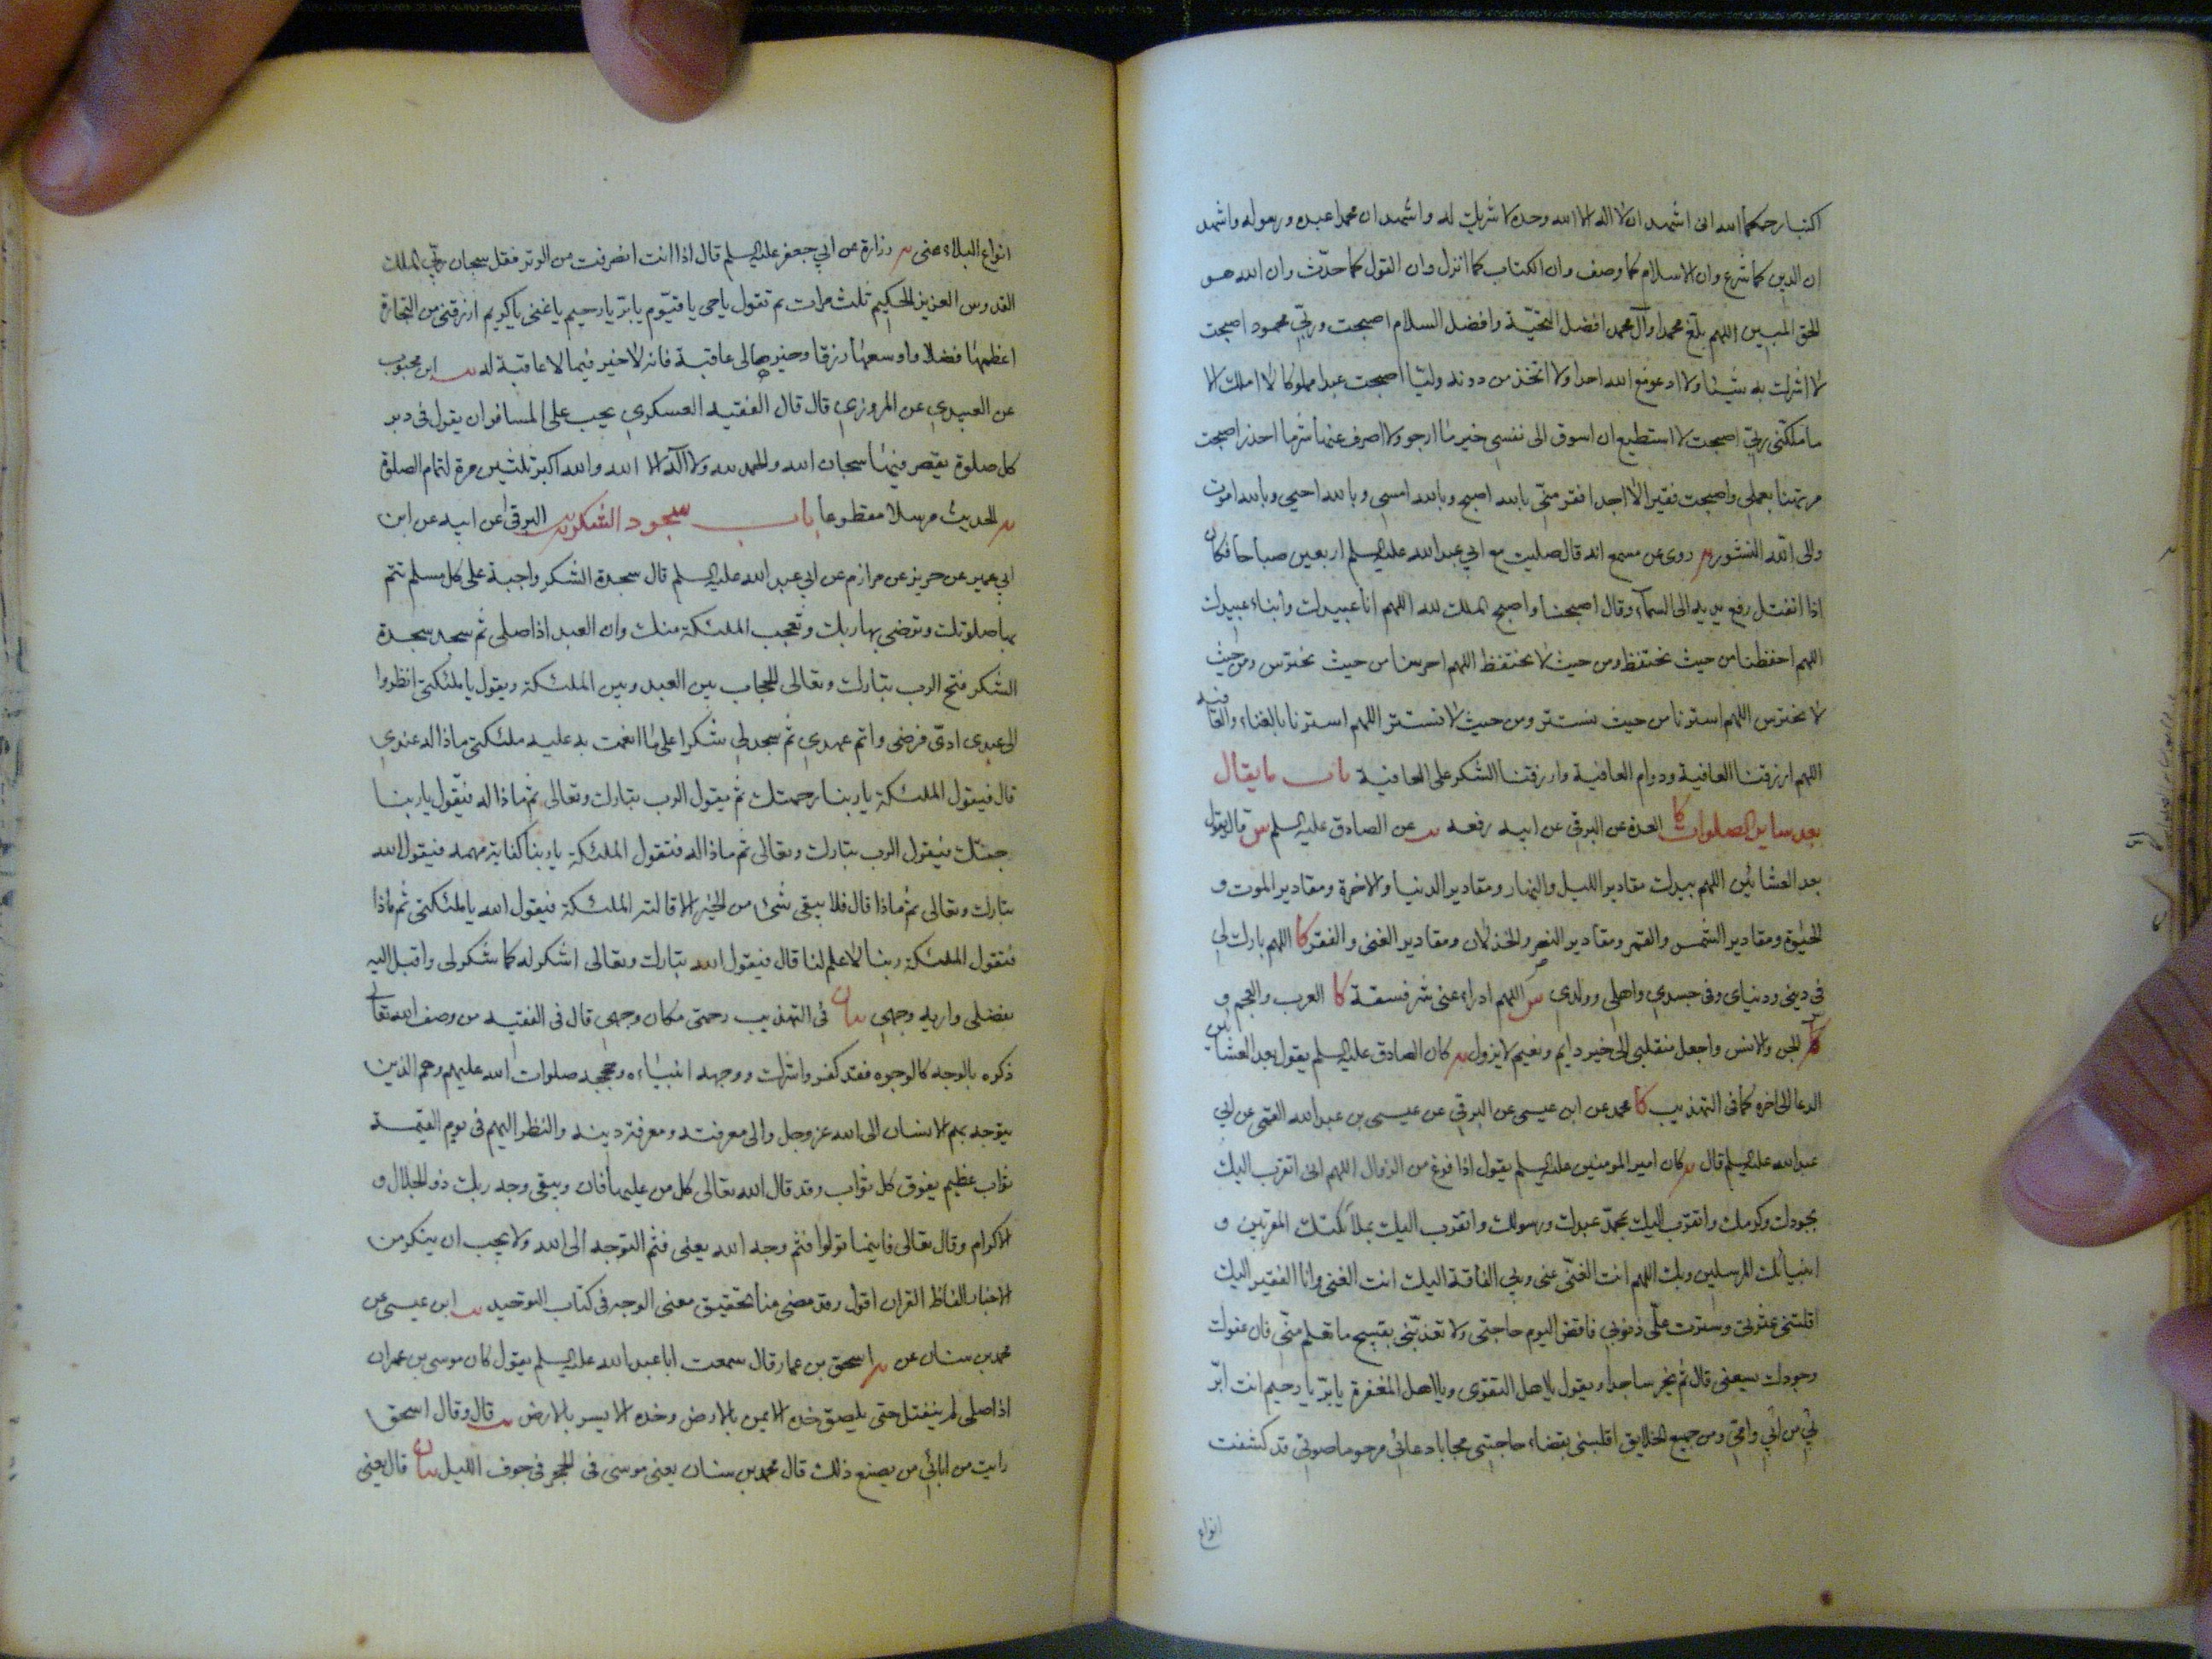 اكتبا رحمكما الله اني اشهد ان لا اله الا الله وحده لا شريك له واشهد ان محمدا عبده ورسوله واشهد
ان الدين كما شرع وان الاسلام كما وصف وان الكتاب كما انزل وان القول كما حدّث وان الله هو
الحق المبين اللهم بلّغ محمدا وآل محمد افضل التحيّة وافضل السلام اصبحت وربّي محمود اصبحت
لا اشرك به شيئا ولا ادعو مع الله احدا ولا اتخذ من دونه وليّا اصبحت عبدا مملوكا لا املك الا
ما ملكّني ربّي اصبحت لا استطيع ان اسوق الى نفسي خير ما ارجو ولا اصرف عنها شرما احذر اصبحت
مرتهنا بعملي واصبحت فقيرا لا اجد افقر منّي بالله اصبح وبالله امسي وبالله احيى وبالله اموت
والى الله النشور يه روى عن مسمع انه قال صليت مع ابي عبد الله عليه السلم اربعين صباحا فكان
اذا انفتل رفع يديه الى السمآء وقال اصبحنا واصبح الملك لله اللهم انا عبيدك وابناء عبيدك
اللهم احفظنا من حيث نحتفظ ومن حيث لا نحتفظ اللهم احرسنا من حيث نحترس ومن حيث
لا نحترس اللهم استرنا من حيث نستتر ومن حيث لا نستتر اللهم استرنا بالغناء والعافيه
اللهم ارزقنا العافية ودوام العافية وارزقنا الشكر على العافية باب ما يقال
بعد ساير الصلوات كا العدة عن البرقي عن ابيه رفعه يب عن الصادق عليه السلم ش قال يقول
بعد العشائين اللهم بيدك مقادير الليل والنهار ومقادير الدنيا والاخرة ومقادير الموت و
الحيوة ومقادير الشمس والقمر ومقادير النصر والخذلان ومقادير الغنى والفقر كا اللهم بارك لي
في ديني ودنياى وفى جسدي واهلي وولدي ش اللهم ادراء عنى شر فسقة كا العرب والعجم و
كل الجن والانس واجعل منقلبي الى خير دايم ونعيم لا يزول يه كان الصادق عليه السلم يقول بعد العشائين
الدعا الى اخره كما فى التهذيب كا محمد عن ابن عيسى عن البرقي عن عيسى بن عبد الله القمي عن ابي
عبد الله عليه السلم قال يه كان امير المومنين عليه السلم يقول اذا فرغ من الزوال اللهم انى اتقرب اليك
بجودك وكرمك واتقرّب اليك بمحمدّ عبدك ورسولك واتقرب اليك بملآئكتك المقربّين و
انبيائك المرسلين وبك اللهم انت الغنّي عنى وبي الفاقة اليك انت الغنى وانا الفقير اليك
اقلتني عثرتى وسترت علّى ذنوبي فاقض اليوم حاجتى ولا تعذبّني بقبيح ما تعلم منّي فان عفوك
وجودك يسعني قال ثم يخر ساجدا ويقول يا اهل التقوى ويا اهل المغفرة يا برّ يا رحيم انت ابرّ
بي من ابي وامّي ومن جميع الخلايق اقلبنى بقضاء حاجتي مجابا دعائي مرحوما صوتي قد كشفت
انواع
انواع البلاء عنى يه زرارة عن ابي جعفر عليه السلم قال اذا انت انصرفت من الوتر فقل سبحان ربّي الملك
القدوس العزيز الحكيم ثلث مرات ثم تقول يا حى يا قيّوم يا برّ يا رحيم يا غنى يا كريم ارزقني من التجارة
اعظمها فضلا واوسعها رزقا وخيرها لي عاقبة فانه لا خير فيما لا عاقبة له يب ابن محبوب
عن العبيدي عن المروزي قال قال الفقيه العسكري يجب على المسافر ان يقول فى دبر
كل صلوة يقصر فيها سبحان الله والحمد لله ولا اله الا الله والله اكبر ثلثين مرة لتمام الصلوة
يه الحديث مرسلا مقطوعا باب سجود الشكر يب البرقي عن ابيه عن ابن
ابي عمير عن حريز عن مرازم عن ابي عبد الله عليه السلم قال سجدة الشكر واجبة على كل مسلم تتم
بها صلوتك وترضي بها ربك وتعجب الملئكة منك وان العبد اذا صلى ثم سجد سجدة
الشكر فتح الرب تبارك وتعالى الحجاب بين العبد وبين الملئكة ويقول يا ملئكتي انظروا
الى عبدي ادّى فرضى واتم عهدي ثم سجد لي شكرا على ما انعمت به عليه ملئكتي ماذا له عندي
قال فيقول الملئكة يا ربنا رحمتك ثم يقول الرب تبارك وتعالى ثم ماذا له فيقول يا ربنا
جنتك فيقول الرب تبارك وتعالى ثم ماذا له فتقول الملئكة يا ربنا كفاية مهمه فيقول الله
تبارك وتعالى ثم ماذا قال فلا يبقى شىء من الخير الا قالته الملئكة فيقول الله يا ملئكتي ثم ماذا
فتقول الملئكة ربنا لا علم لنا قال فيقول الله تبارك وتعالى اشكر له كما شكر لى واقبل اليه
بفضلى واريه وجهي بيان فى التهذيب رحمتي مكان وجهي قال فى الفقيه من وصف الله تعالى
ذكره بالوجه كالوجوه فقد كفر واشرك ووجهه انبياءه وحججه صلوات الله عليهم وهم الذين
يتوجه بهم الانسان الى الله عز وجل والى معرفته ومعرفة دينه والنظر اليهم فى يوم القيمة
ثواب عظيم يفوق كل ثواب وقد قال الله تعالى كل من عليها فان ويبقى وجه ربك ذو الجلال و
الاكرام وقال تعالى فاينما تولوا فثم وجه الله يعنى فثم التوجه الى الله ولا يجب ان ينكر من
الاخبار الفاظ القران اقول وقد مضى منا تحقيق معنى الوجه فى كتاب التوحيد يب ابن عيسى عن
محمد بن سنان عن يه اسحق بن عمار قال سمعت ابا عبد الله عليه السلم يقول كان موسى بن عمران
اذا صلى لم ينفتل حتى يلصق خده الايمن بالارض وخده الايسر بالارض يب قال وقال اسحق
رايت من ابائي من يصنع ذلك قال محمد بن سنان يعنى موسى فى الحجر فى جوف الليل بيان قال يعنى